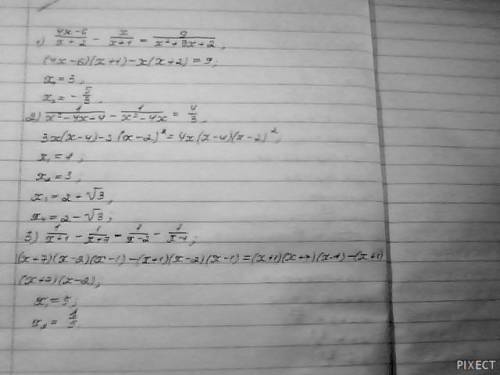 1) (4x-6)/(x+2) - x/(x+1) = 9/(x²+3x+2);
(4x-6)(x+1)-x(x+2)=9;
x₁=3;
x₂=-5/3.
2) 1/(x²-4x-4) - 1/(x²-4x) = 4/3;
3x(x-4)-3(x-2)²=4x(x-4)(x-2)²;
x₁=1;
x₂=3;
x₃=2-√3,
x₄=2-√3;
3) 1/(x+1) - 1/(x+7) = 1/(x-2) - 1/(x-1);
(x+7)(x-2)(x-1)-(x+1)(x-2)(x-1)=(x+1)(x+7)(x-1)-(x+1)
(x+7)(x-2);
x₁=5;
PIXECT